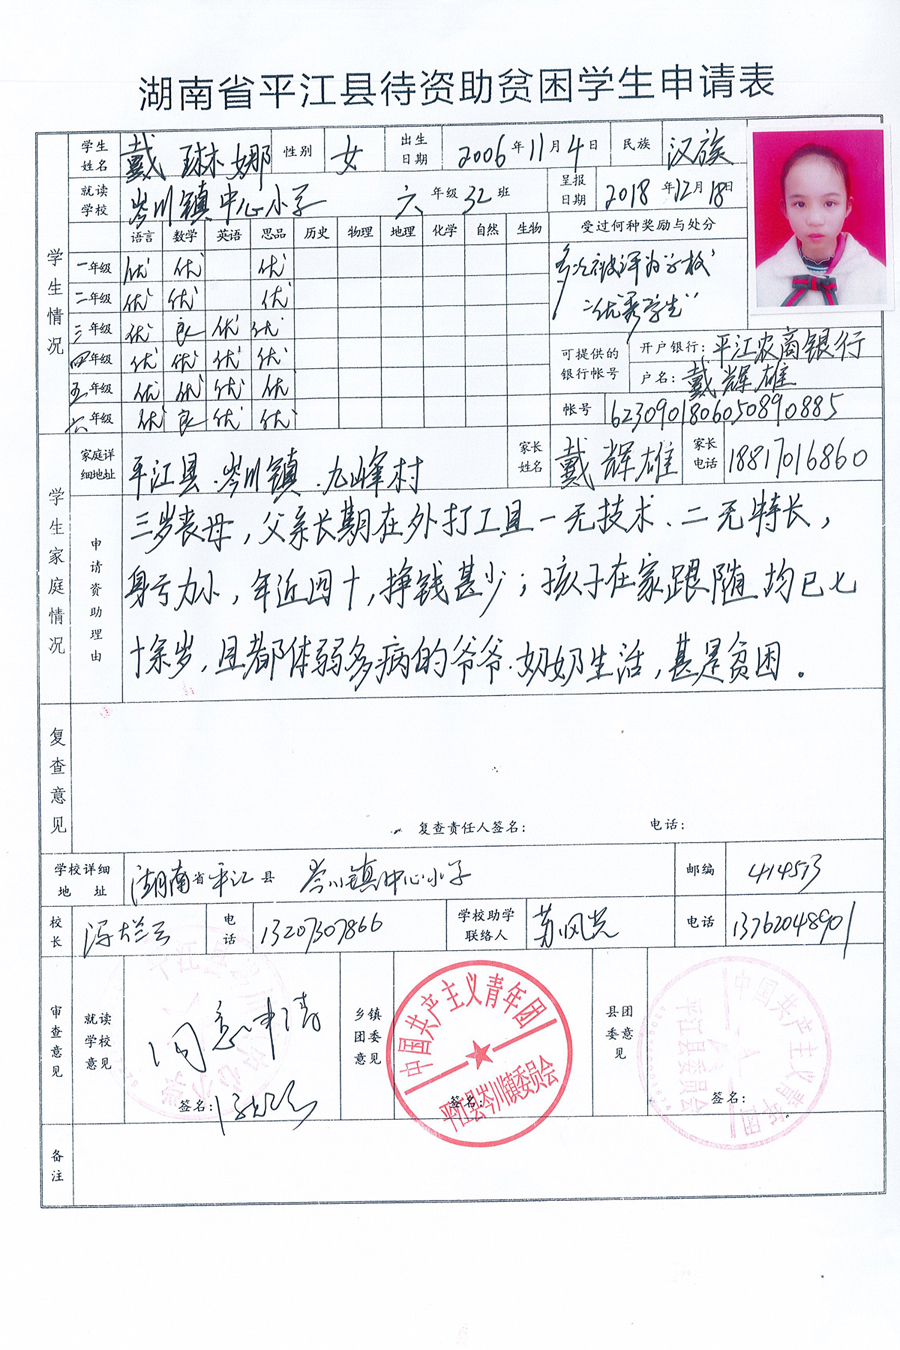 湖南省平江县待资助贫困学生申请表
学生情况
学生姓名 戴琳娜 性别 女 出生日期 2006年11月4日 民族 汉族
就读学校 岑川镇中心小学 六年级32班 呈报日期 2018年12月18日
语言 数学 英语 思品 历史 物理 地理 化学 自然 生物 受过何种奖励与处分
一年级 优 优 优
二年级 优 优 优
三年级 优 良 优 优
四年级 优 优 优 优
五年级 优 优 优 优
六年级 优 良 优 优
多次被评为学校
“优秀学生”
可提供的银行帐号 开户银行：平江农商银行
户名：戴辉雄
帐号 6230901806050890885
学生家庭情况
家庭详细地址 平江县.岑川镇.九峰村 家长姓名 戴辉雄 家长电话 18817016860
申请资助理由
三岁丧母，父亲长期在外打工且一无技术、二无特长，
身亏力小，年近四十，挣钱甚少；孩子在家跟随均已七
十余岁，且都体弱多病的爷爷.奶奶生活，甚是贫困。
复查意见
复查责任人签名： 电话：
学校详细地址 湖南省平江县 岑川镇中心小学 邮编 414513
校长 电话 13207307866 学校助学联络人 电话 13762048901
审查意见
就读学校意见 同意申请 签名：
乡镇团委意见 签名：
中国共产主义青年团
平江县岑川镇委员会
县团委意见 签名：
中国共产主义青年团
平江县委员会
备注